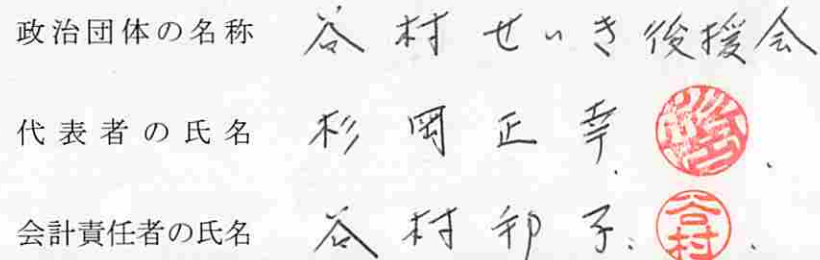 政治団体の名称 谷村せいき後援会
代表者の氏名 杉岡正幸
会計責任者の氏名 谷村和子
谷村